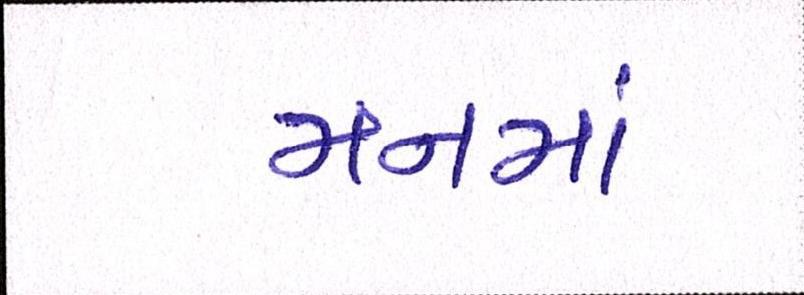 મનમાં